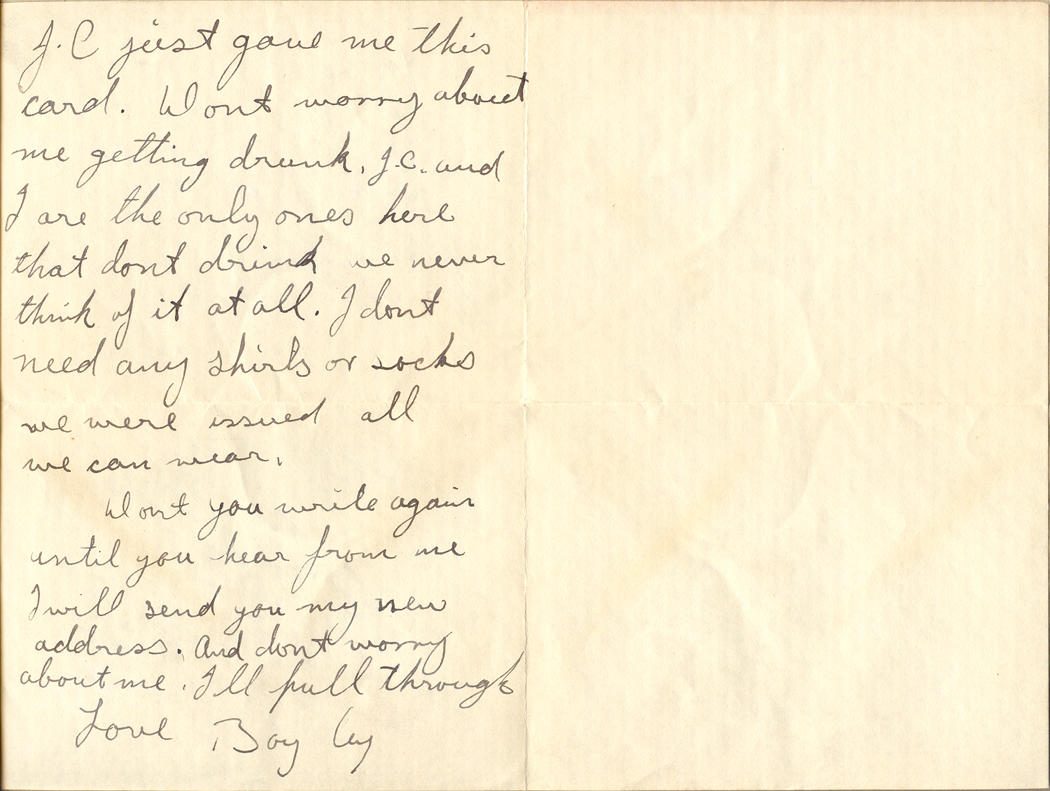 J.C just gave me this
card. Dont worry about
me getting drunk, J.C. and
I are the only ones here
that dont drink we never
think of it at all. I dont
need any shirts or socks
we were issued all
we can wear.
Dont you write again
until you hear from me
I will send you my new
address. And dont worry
about me. I'll pull through
Love Boy